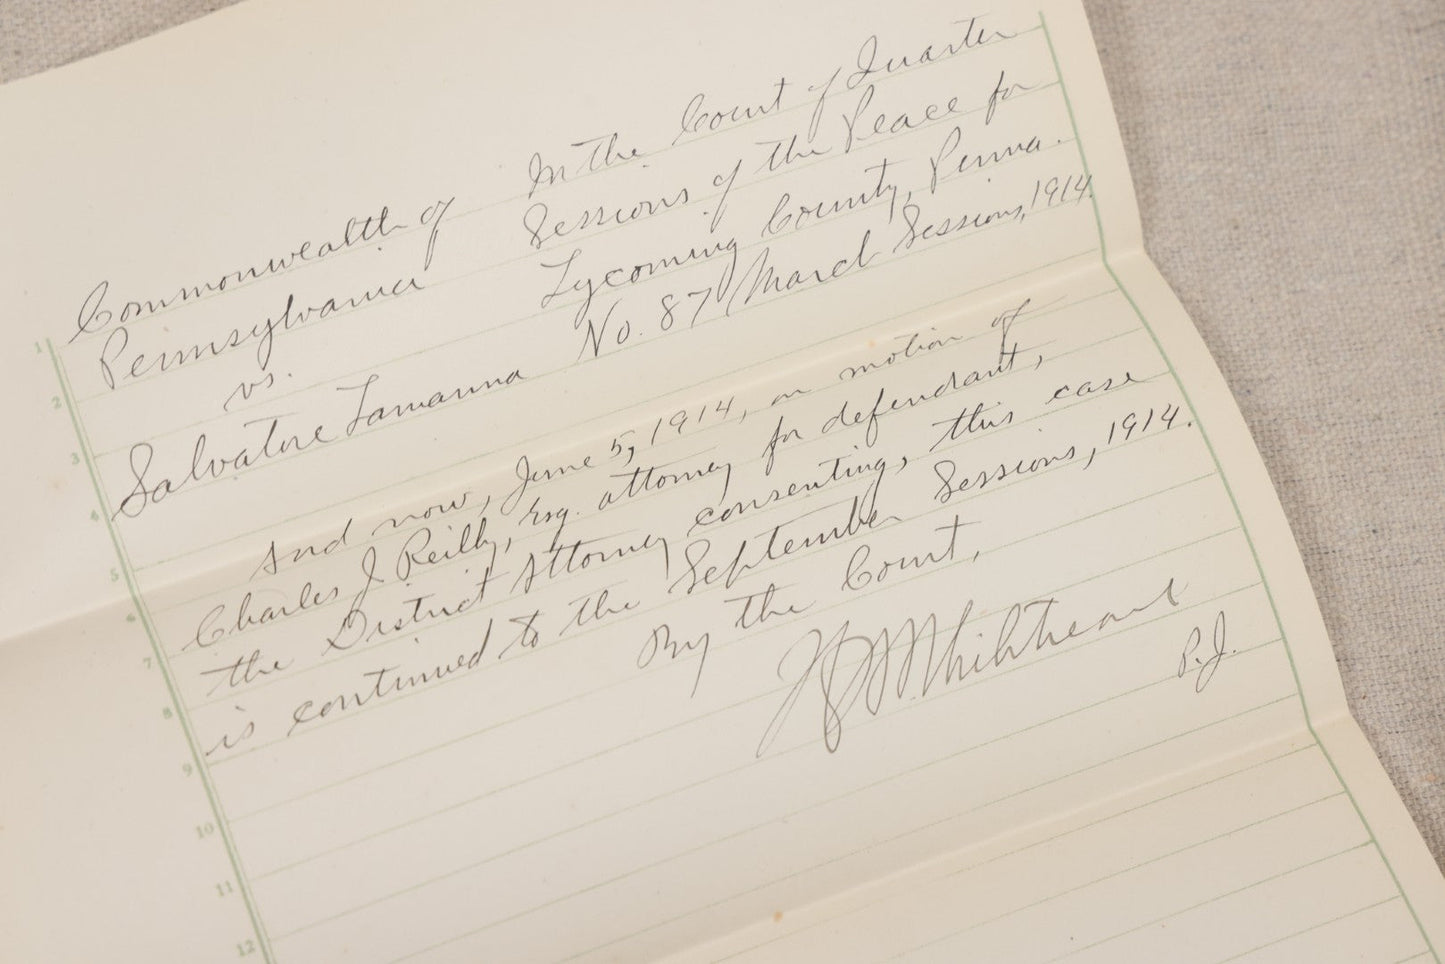 In the Court of Quarter
Commonwealth of Sessions of the Peace for
Pennsylvania Lycoming County, Penna.
vs. No. 87 March Sessions, 1914.
Salvatore Lamanna
And now, June 5, 1914, on motion of
Charles J. Reilly, Esq. attorney for defendant,
the District Attorney consenting, this case
is continued to the September Sessions, 1914.
By the Court,
Whitehead
P.J.
1
2
3
4
5
6
7
8
9
10
11
12